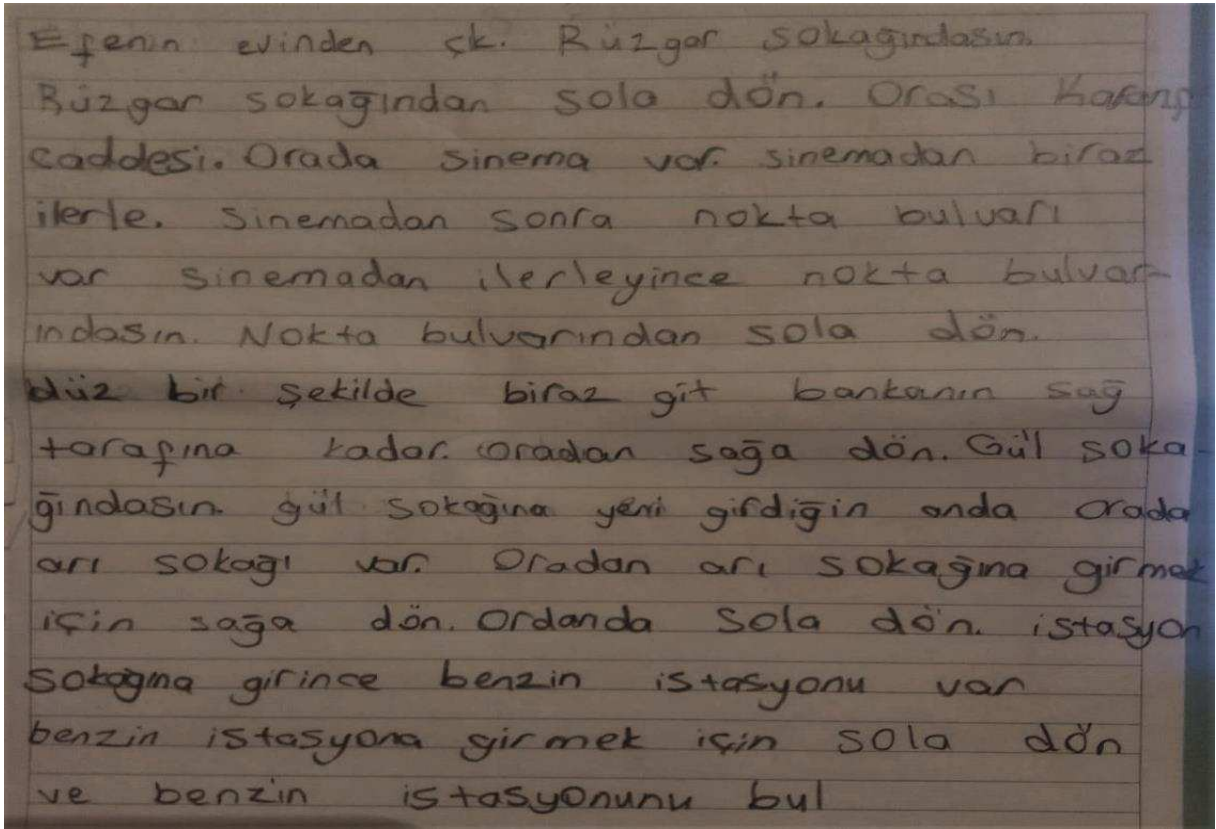 Efenin evinden çk. Rüzgar sokağındasın.
Rüzgar sokağından sola dön. Orası
caddesi. Orada sinema var. sinemadan biraz
ilerle. Sinemadan sonra nokta bulvarı
var sinemadan ilerleyince nokta bulvar-
ındasın. Nokta bulvarından sola dön.
düz bir şekilde biraz git bankanın sağ
tarafına kadar. oradan sağa dön. Gül soka-
ğındasın. gül sokağına yeni girdiğin anda orada
arı sokağı var. Oradan arı sokağına girmek
için sağa dön. Ordanda sola dön. istasyon
sokağına girince benzin istasyonu var
benzin istasyona girmek için sola dön
ve benzin istasyonunu bul